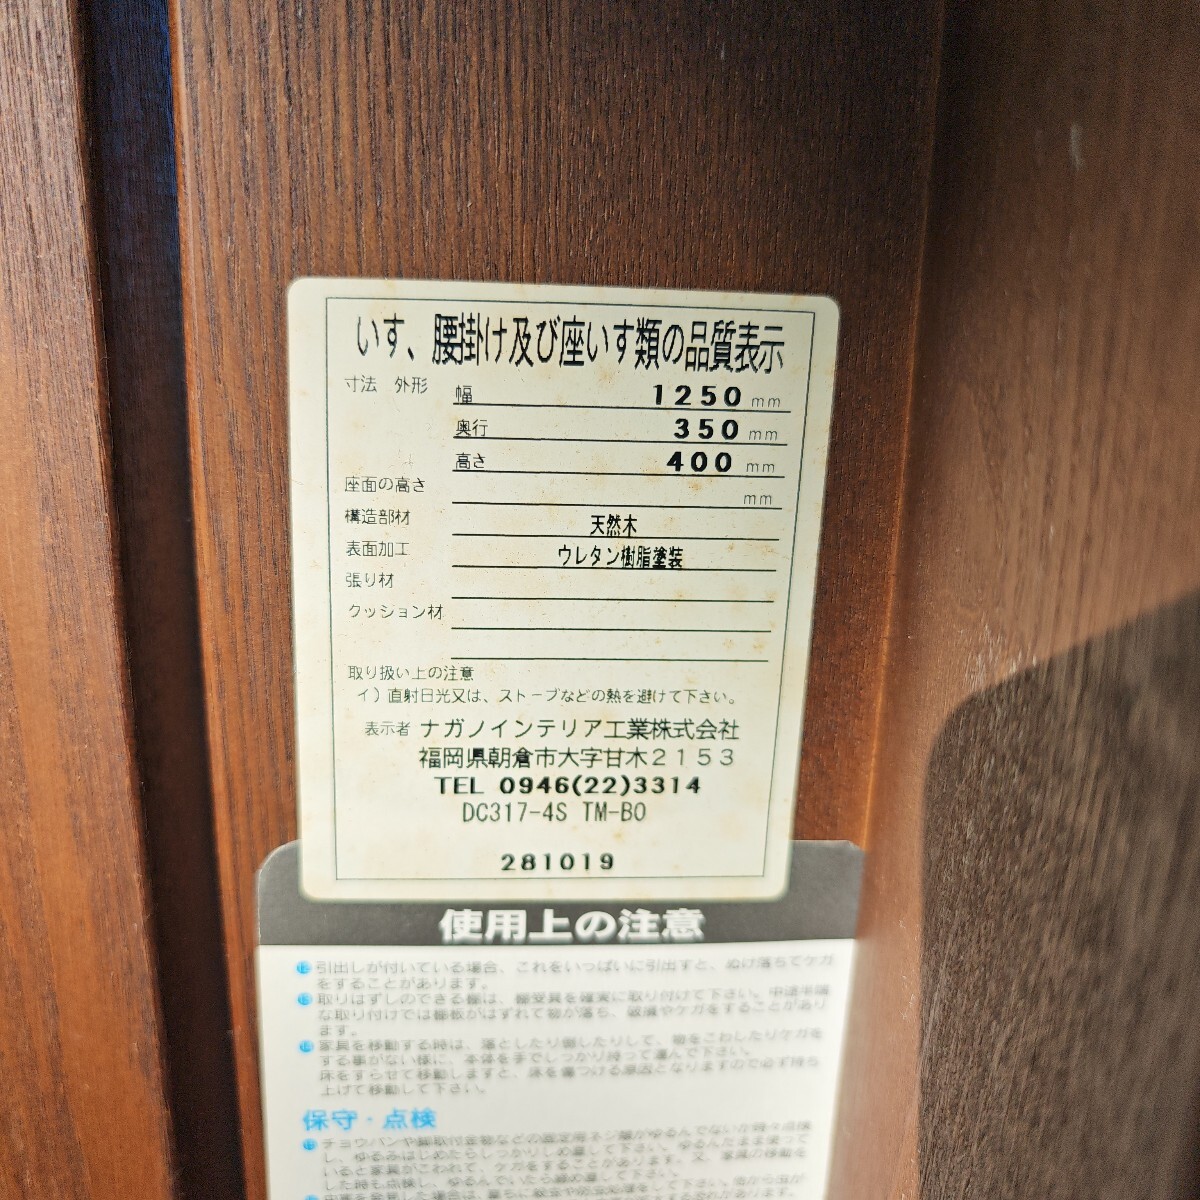 いす、腰掛け及び座いす類の品質表示
寸法 外形 幅 1250 mm
奥行 350 mm
高さ 400 mm
座面の高さ mm
構造部材 天然木
表面加工 ウレタン樹脂塗装
張り材
クッション材
取り扱い上の注意
イ）直射日光又は、ストーブなどの熱を避けて下さい。
表示者 ナガノインテリア工業株式会社
福岡県朝倉市大字甘木2153
TEL 0946(22)3314
DC317-4S TM-BO
281019
使用上の注意
⑫引出しが付いている場合、これをいっぱいに引出すと、ぬけ落ちてケガ
をすることがあります。
⑬取りはずしのできる棚は、棚受具を確実に取り付けて下さい。中途半端
な取り付けでは棚板がはずれて物が落ち、破損やケガをすることがあり
ます。
⑭家具を移動する時は、落としたり倒したりして、物をこわしたりケガを
する事がない様に、本体を手でしっかり持って運んで下さい。
床をすらせて移動しますと、床を傷つける原因となりますので必ず持ち
上げて移動して下さい。
保守・点検
し、ゆるみはじめたらしっかりしめ直して下さい。